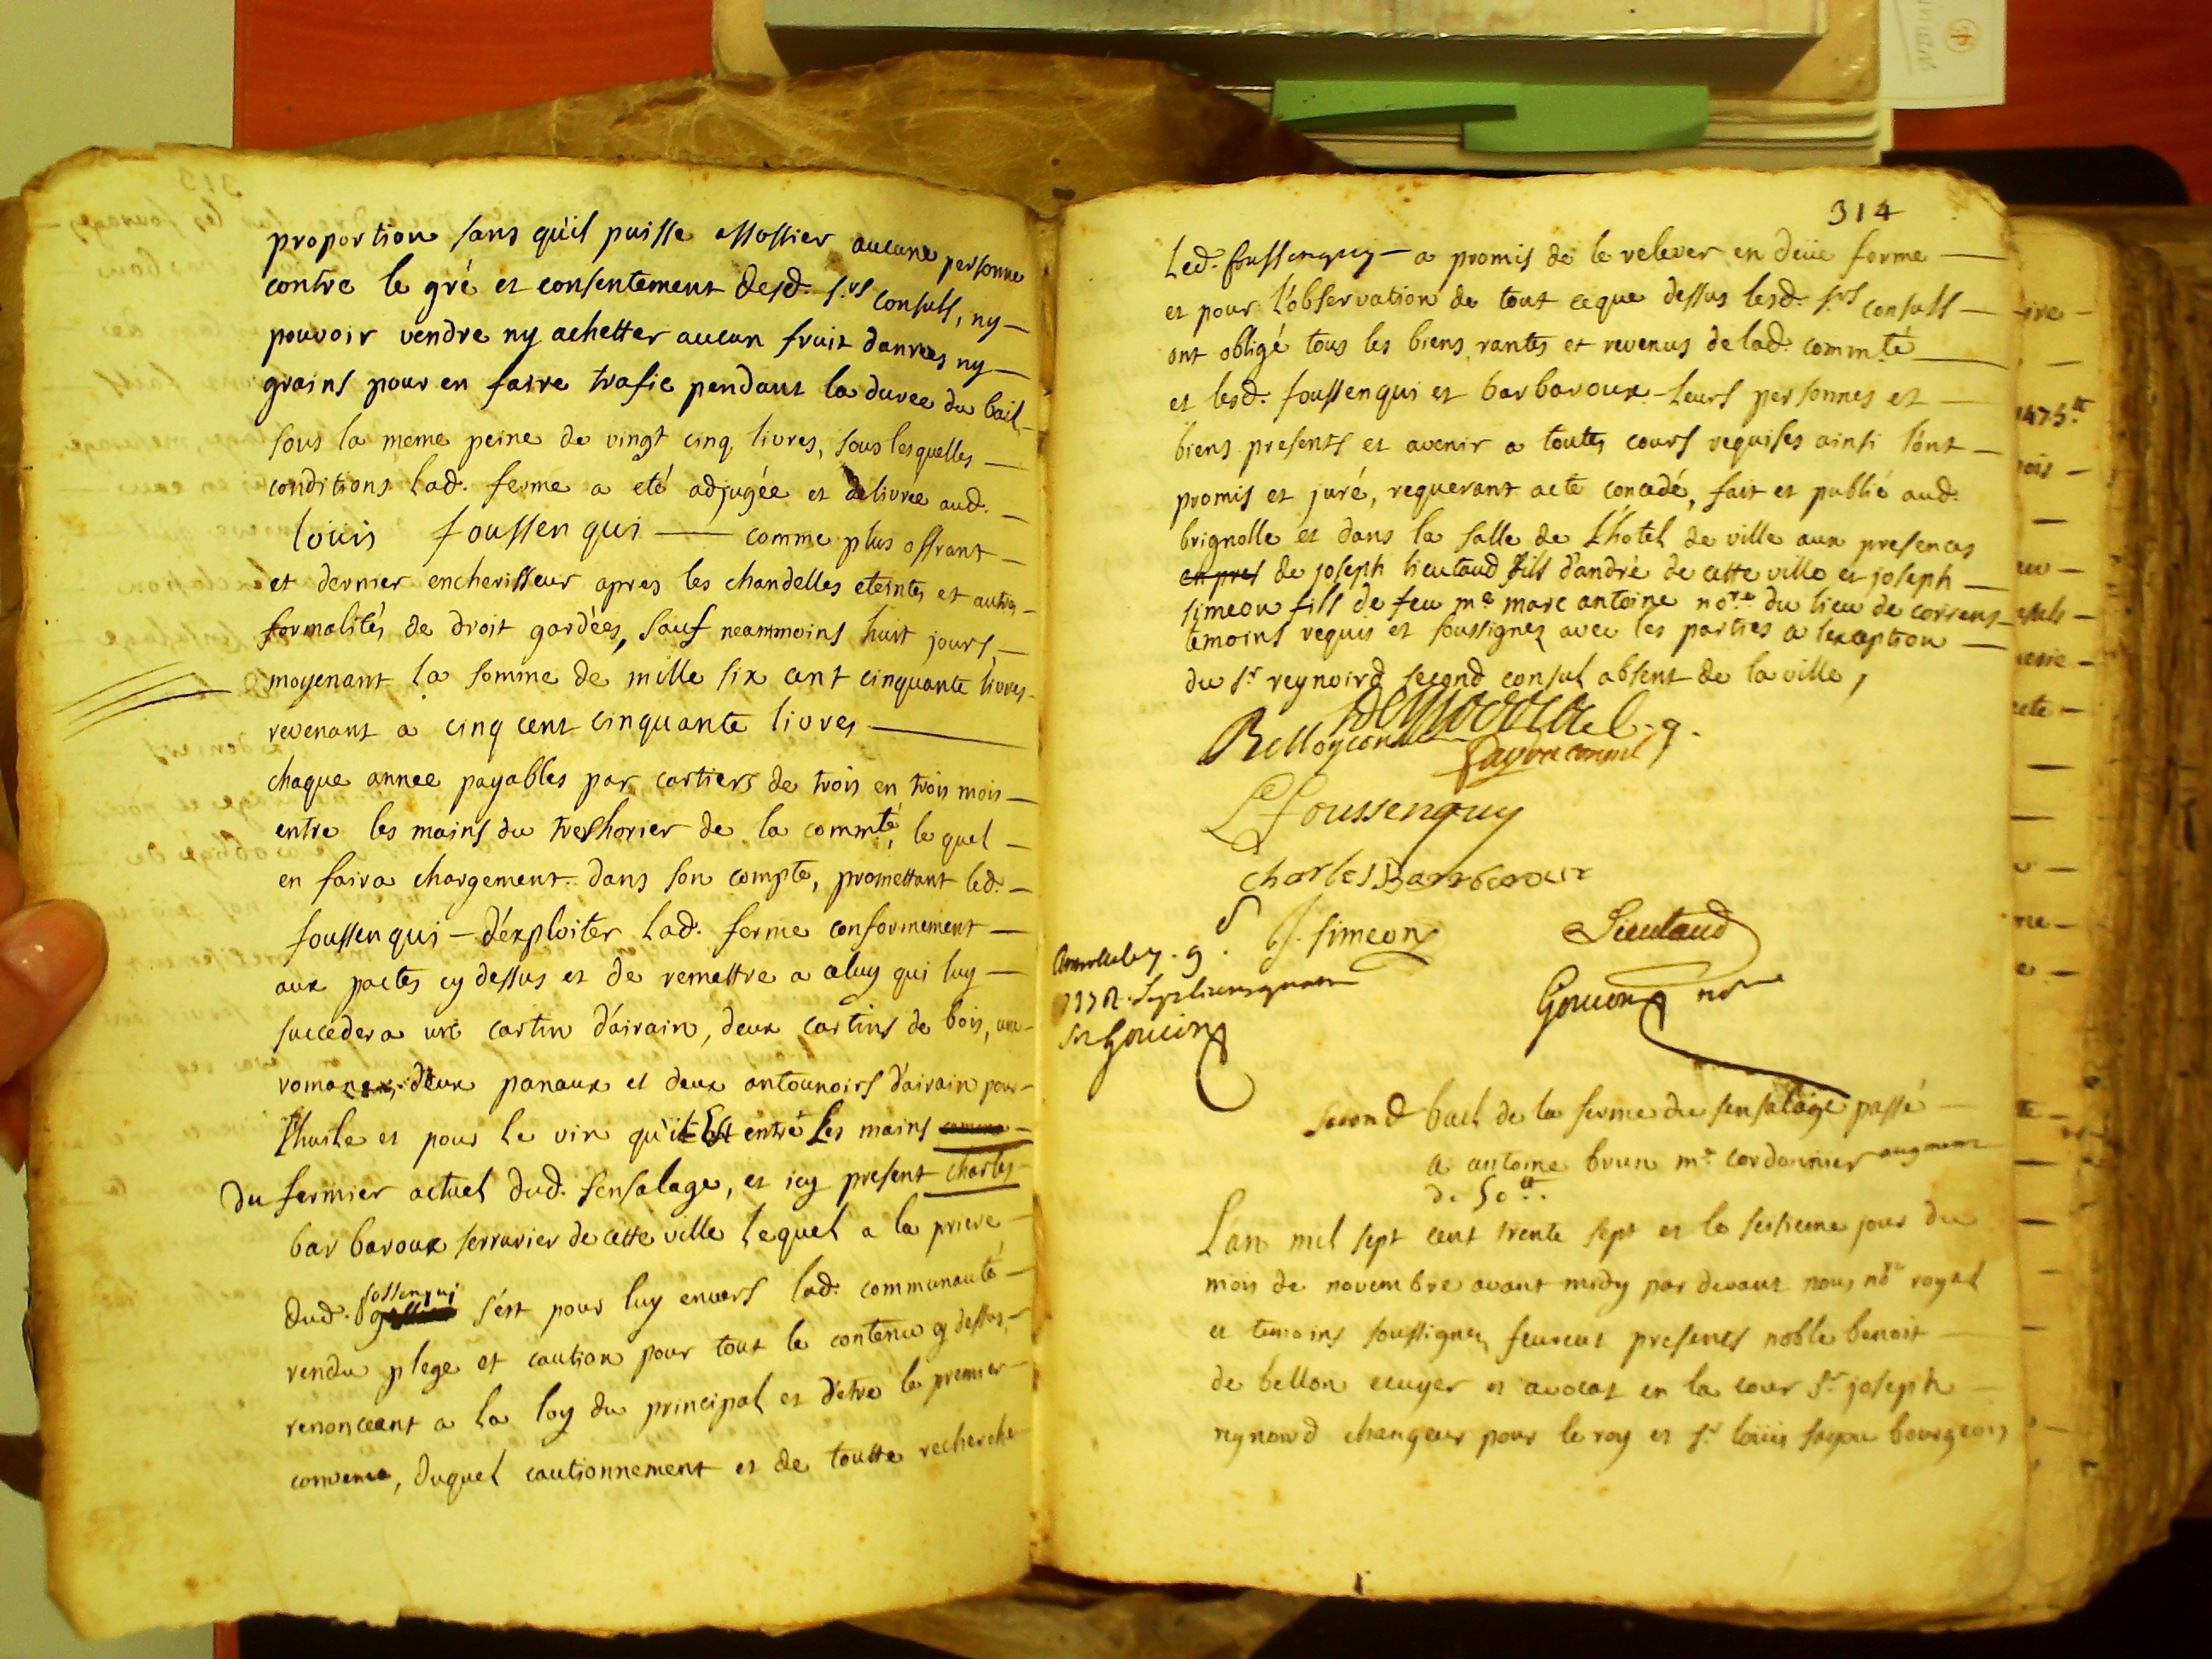 proportion sans qu'il puisse assossier aucune personne
contre le gré et consentement desd. s.rs consuls, ny
pouvoir vendre ny achetter aucun fruit danrées ny
grains pour en faire trafic pendant la durée du bail
sous la meme peine de vingt cinq livres, sous lesquelles
conditions lad. ferme a eté adjugée et delivrée aud.
loüis foussenqui comme plus offrant
et dernier encherisseur apres les chandelles eteintes et autres
formalités de droit gardées, sauf neammoins huit jours,
moyenant la somme de mille six cent cinquante livres
revenant a cinq cent cinquante livres
chaque année payables par cartiers de trois en trois mois
entre les mains du treshorier de la comm.té, le quel
en faira chargement dans son compte, promettant led.
foussenqui d'exploiter lad. ferme conformement
aux pactes cy dessus et de remettre a celuy qui luy
succedera un cartin d'airain, deux cartins de bois, une
romane, deux panaux et deux antounoirs d'airain pour
l'huile et pour le vin qu'il est entré les mains
du fermier actuel dud. sensalage, et icy present charles
barbaroux serrurier de cette ville lequel a la priere
dud. fossenqui s'est pour luy envers lad. communauté
rendu plege et caution pour tout le contenu cy dessus,
renonceant a la loy du principal et d'etre le premier
convenu, duquel cautionnement et de toutte recherche
314
Led. foussenquy a promis de le relever en deüe forme
et pour l'observation de tout ce que dessus lesd. s.rs consuls
ont obligé tous les biens rantes et revenus de lad. comm.té
et lesd. foussenqui et barbaroux leurs personnes et
biens presents et avenir a toutes cours requises ainsi l'ont
promis et juré, requerant acte concedé, fait et publié aud.
brignolle et dans la salle de l'hotel de ville aux presences
en pres de joseph lieutaud fils d'andré de cette ville et joseph
simeon fils de feu m.e marc antoine no.re du lieu de correns
temoins requis et soussignez avec les parties a l'exception
du s.r reynoird second consul absent de la ville,
L Foussenquy
charles Barbaroux
J. simeon
Lieutaud
Goujon no.re
second bail de la ferme du sensalage passé
a antoine brun m.e cordonnier augment
de 50 tt.
L'an mil sept cent trente sept et le seisieme jour du
mois de novembre avant midy par devant nous no.re royal
et temoins soussignez feurent presents noble benoit
de bellon ecuyer et avocat en la cour s.r joseph
reynoird changeur pour le roy et s.r loüis fayon bourgeois
1475.tt